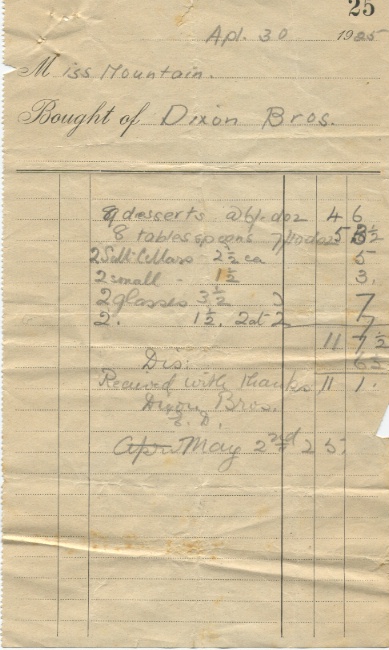 25
Apl. 30 1925
Miss Mountain.
Bought of Dixon Bros.
9 desserts @ 6/- doz 4 6
8 tablespoons doz 5 3½
2 Salt Cellars 2½ ea 5
2 small - 1½ 3.
2 glasses 3½ ) 7
2. 1½. 2 at 2 7
11 7½
Dis: 6½
Received with thanks 11 1.
Dixon Bros.
E. D.
Apri May 2nd 25.